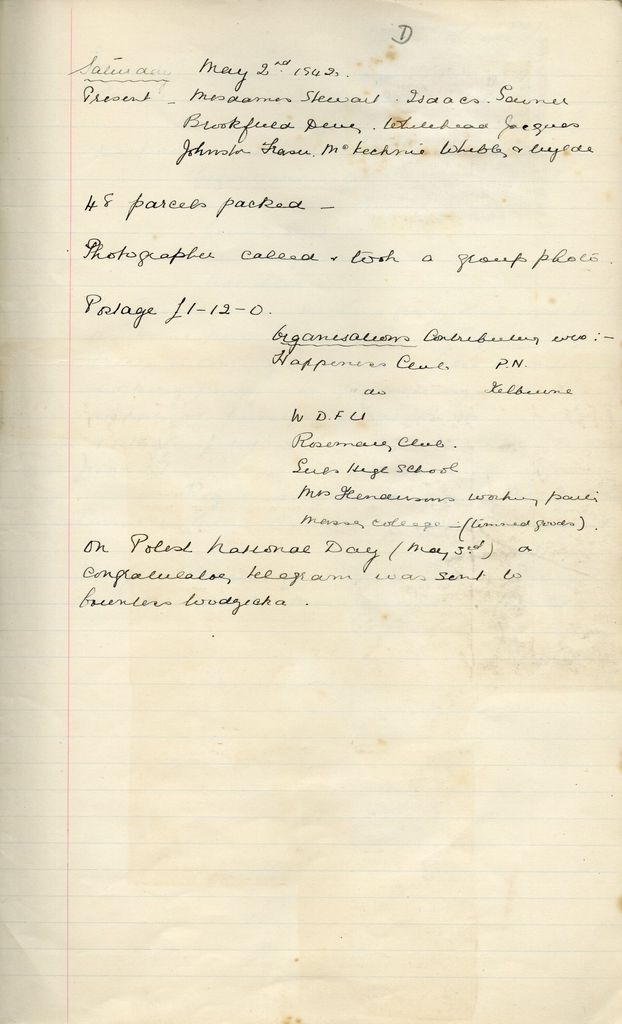 D
Saturday May 2nd 1942.
Present - Mesdames Stewart. Isaacs.
Brookfield Whitehead Jacques
Johnston Fraser. McKechnie Whibley & Wylde
48 parcels packed -
Photographer called & took a group photo.
Postage £1-12-0.
Organisations Contributing were :-
Happiness Club P.N.
do Kelburne
W D. F U
Rosemary Club.
Girls High School
Mrs Hendersons working party
Massey College - (tinned goods).
On Polish National Day (May 3rd) a
congratulatory telegram was sent to
Countess Wodzicka.